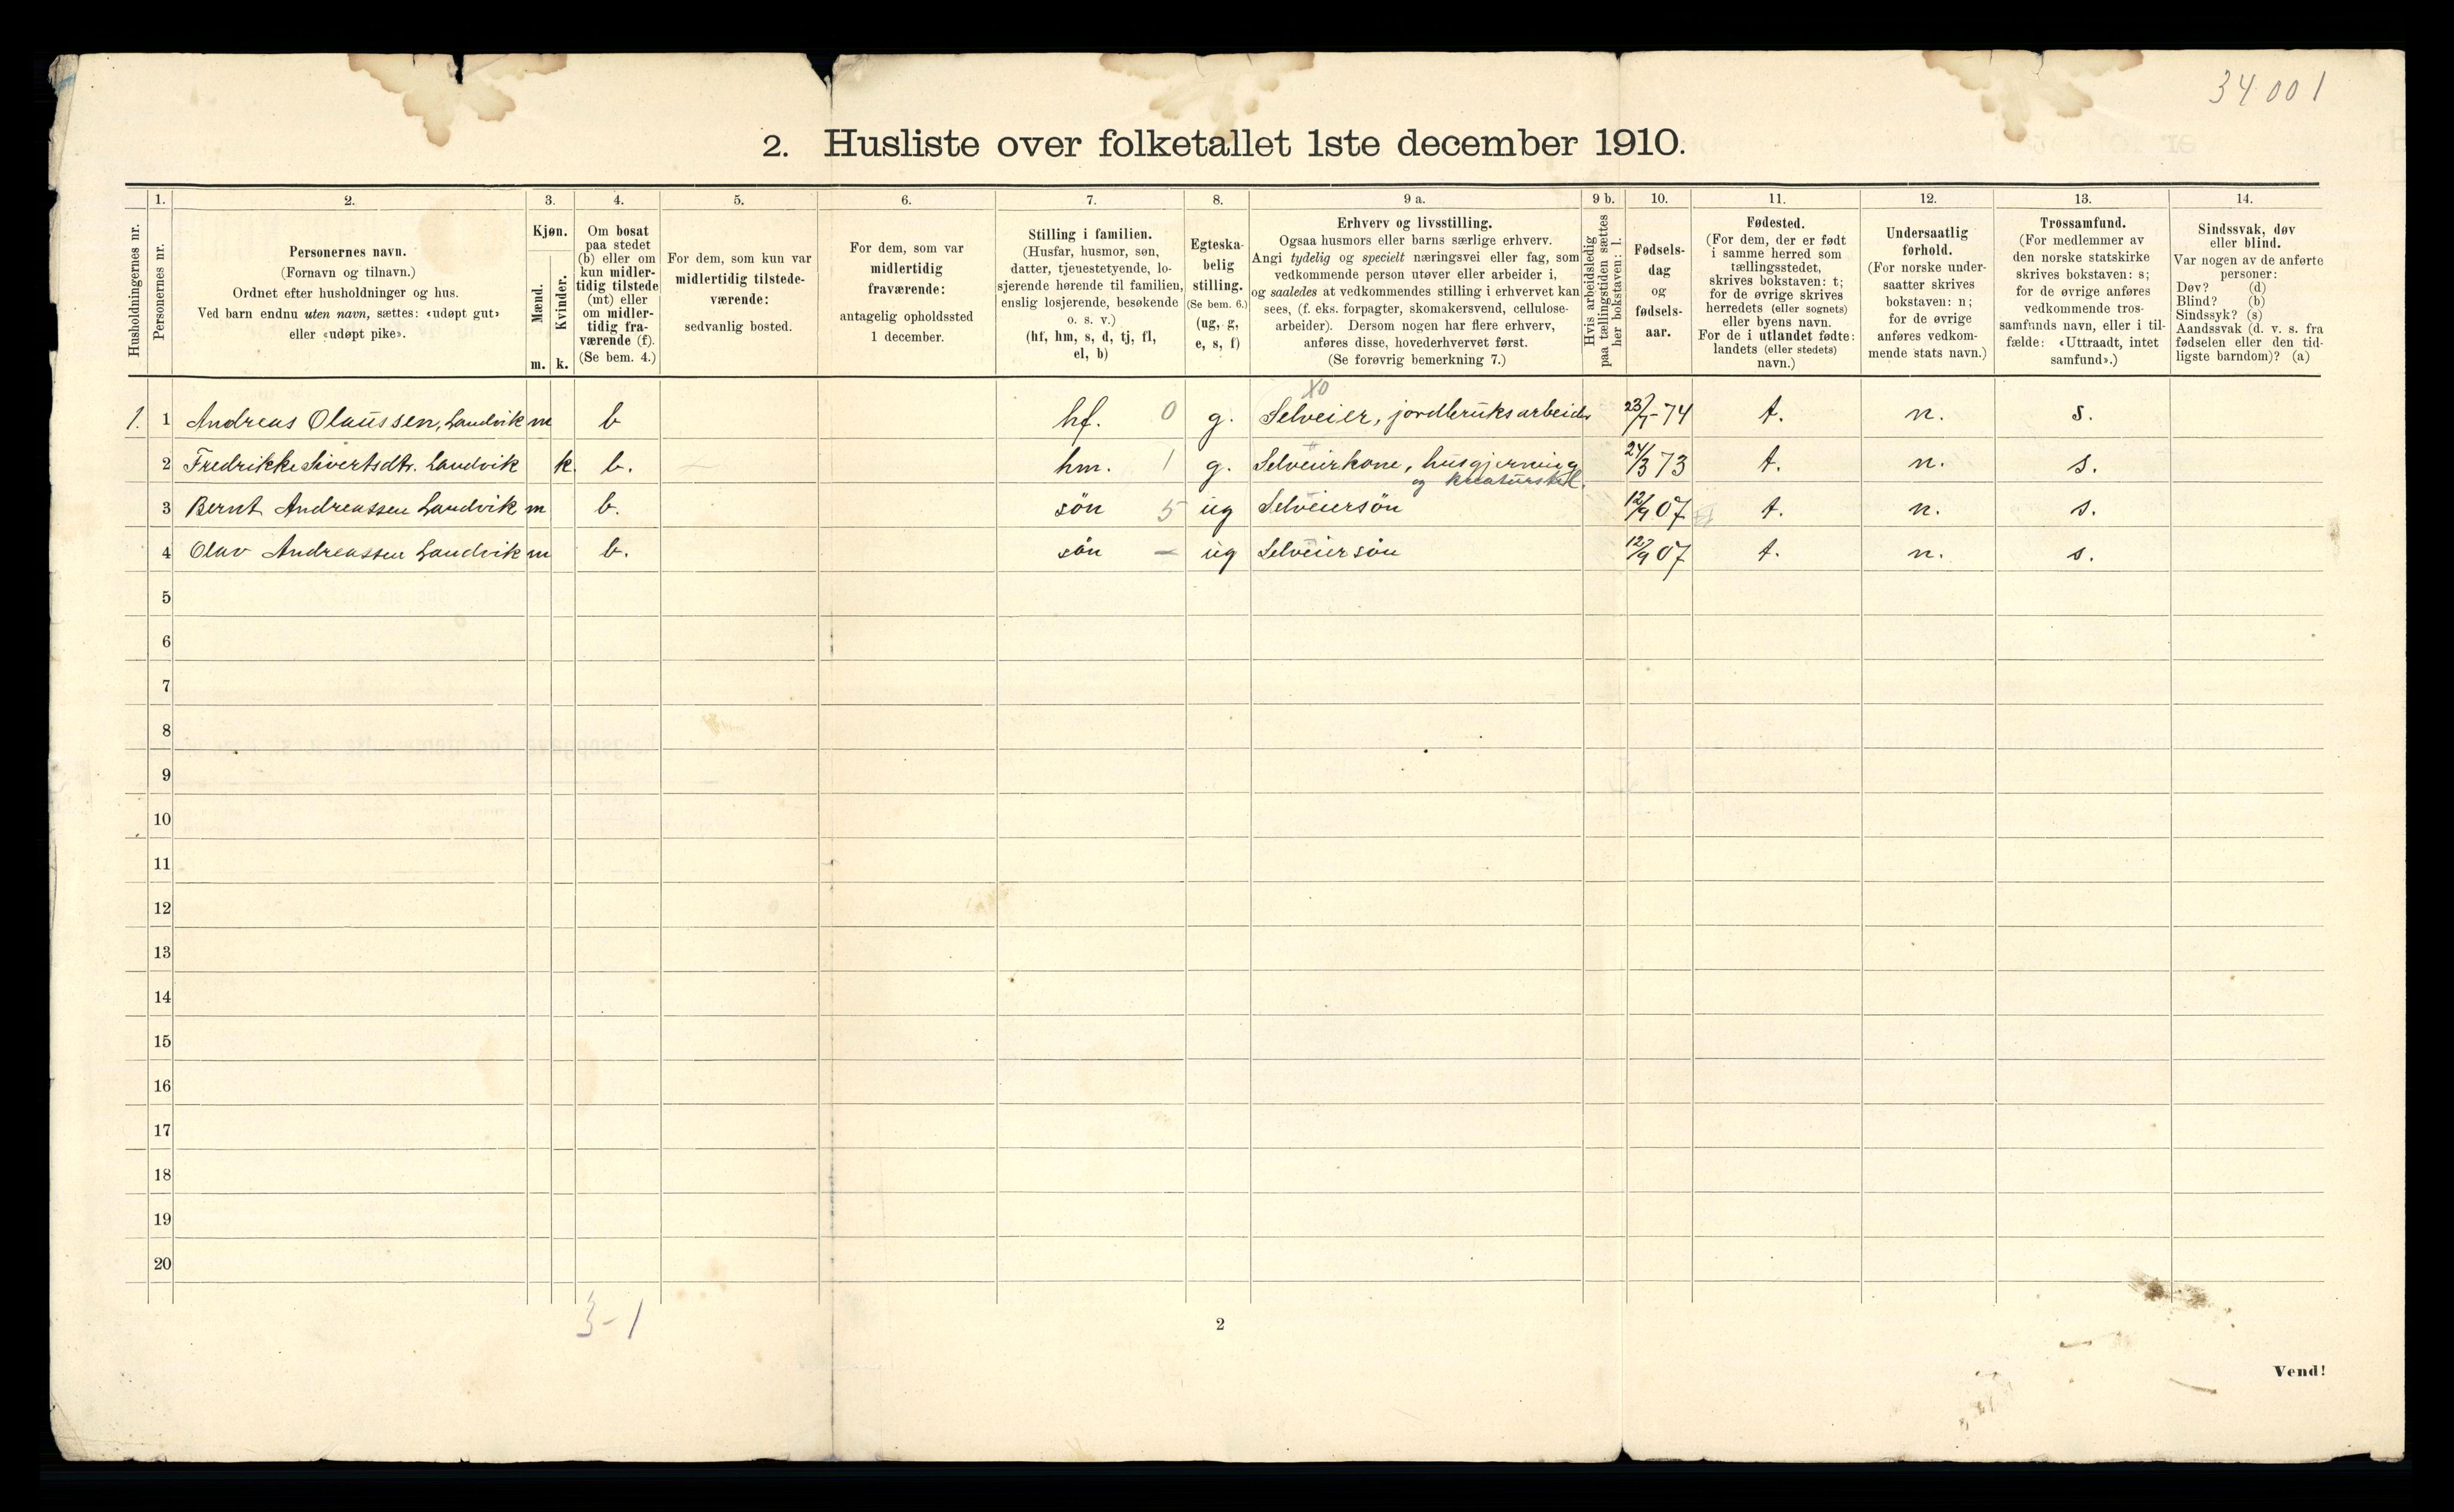 34 00 1
2. Husliste over folketallet 1ste december 1910.
Husholdningernes nr.
1.
Personernes nr.
2.
Personernes navn.
(Fornavn og tilnavn.)
Ordnet efter husholdninger og hus.
Ved barn endnu uten navn, sættes: «udøpt gut»
eller «udøpt pike».
3.
Kjøn.
Mænd.
Kvinder.
m. k.
4.
Om bosat
paa stedet
(b) eller om
kun midler-
tidig tilstede
(mt) eller
om midler-
tidig fra-
værende (f).
(Se bem. 4.)
5.
For dem, som kun var
midlertidig tilstede-
værende:
sedvanlig bosted.
6.
For dem, som var
midlertidig
fraværende:
antagelig opholdssted
1 december.
7.
Stilling i familien.
(Husfar, husmor, søn,
datter, tjenestetyende, lo-
sjerende hørende til familien,
enslig losjerende, besøkende
o. s. v.)
(hf, hm, s, d, tj, fl,
el, b)
8.
Egteska-
belig
stilling.
(Se bem. 6.)
(ug, g,
e, s, f)
9 a.
Erhverv og livsstilling.
Ogsaa husmors eller barns særlige erhverv.
Angi tydelig og specielt næringsvei eller fag, som
vedkommende person utøver eller arbeider i,
og saaledes at vedkommendes stilling i erhvervet kan
sees, (f. eks. forpagter, skomakersvend, cellulose-
arbeider). Dersom nogen har flere erhverv,
anføres disse, hovederhvervet først.
(Se forøvrig bemerkning 7.)
9 b.
Hvis arbeidsledig
paa tællingstiden sættes
her bokstaven: l.
10.
Fødsels-
dag
og
fødsels-
aar.
11.
Fødested.
(For dem, der er født
i samme herred som
tællingsstedet,
skrives bokstaven: t;
for de øvrige skrives
herredets (eller sognets)
eller byens navn.
For de i utlandet fødte:
landets (eller stedets)
navn.)
12.
Undersaatlig
forhold.
(For norske under-
saatter skrives
bokstaven: n;
for de øvrige
anføres vedkom-
mende stats navn.)
13.
Trossamfund.
(For medlemmer av
den norske statskirke
skrives bokstaven: s;
for de øvrige anføres
vedkommende tros-
samfunds navn, eller i til-
fælde: «Uttraadt, intet
samfund».)
14.
Sindssvak, døv
eller blind.
Var nogen av de anførte
personer:
Døv? (d)
Blind? (b)
Sindssyk? (s)
Aandssvak (d. v. s. fra
fødselen eller den tid-
ligste barndom)? (a)
X0
1. 1 Andreas Olaussen, Landvik m b hf. 0 g. Selveier, jordbruksarbeider 23/7-74 t. n. s.
2 Fredrikke Sivertsdtr. Landvik k. b. hm. 1 g. Selveierkone, husgjerning 24/3 73 t. n. s.
og kreaturstel.
3 Bernt Andreassen Landvik m b. søn 5 ug Selveiersøn 12/9 07 t. n. s.
4 Olav Andreassen Landvik m b. søn – ug Selveiersøn 12/9 07 t. n. s.
5
6
7
8
9
10
11
12
13
14
15
16
17
18
19
20
3-1
2
Vend!